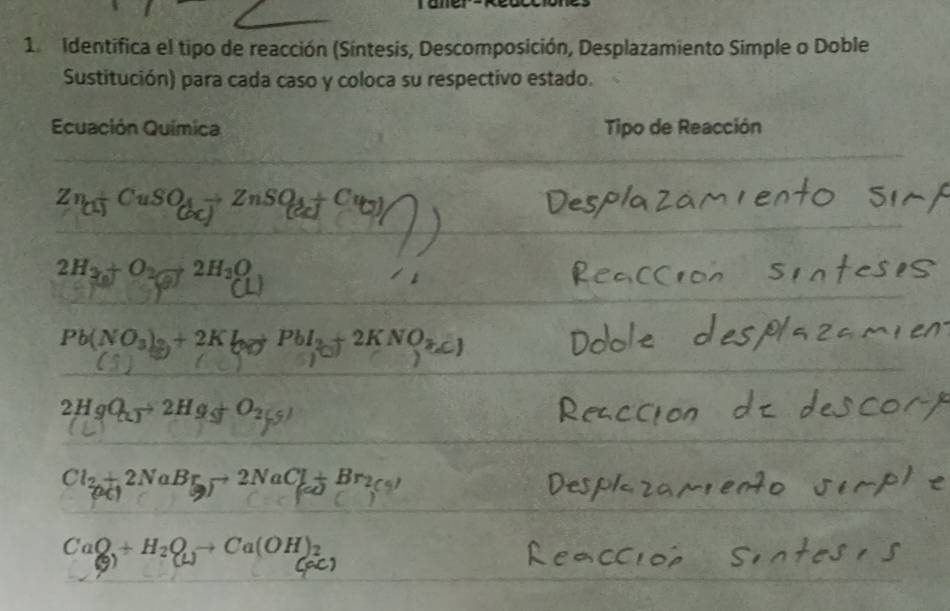 Taller - Reacciones
1. Identifica el tipo de reacción (Síntesis, Descomposición, Desplazamiento Simple o Doble
Sustitución) para cada caso y coloca su respectivo estado.
Ecuación Química Tipo de Reacción
Zn + CuSO₄(ac) → ZnSO₄(ac) + Cu Desplazamiento simp
2H₂ + O₂ → 2H₂O(L) Reaccion sintesis
Pb(NO₃)₂(s) + 2KI → PbI₂ + 2KNO₃ Doble desplazamien
2HgO → 2Hg + O₂ Reaccion de descomp
Cl₂ + 2NaBr → 2NaCl + Br₂ Desplazamiento simple
CaO + H₂O(L) → Ca(OH)₂(ac) Reaccion sintesis